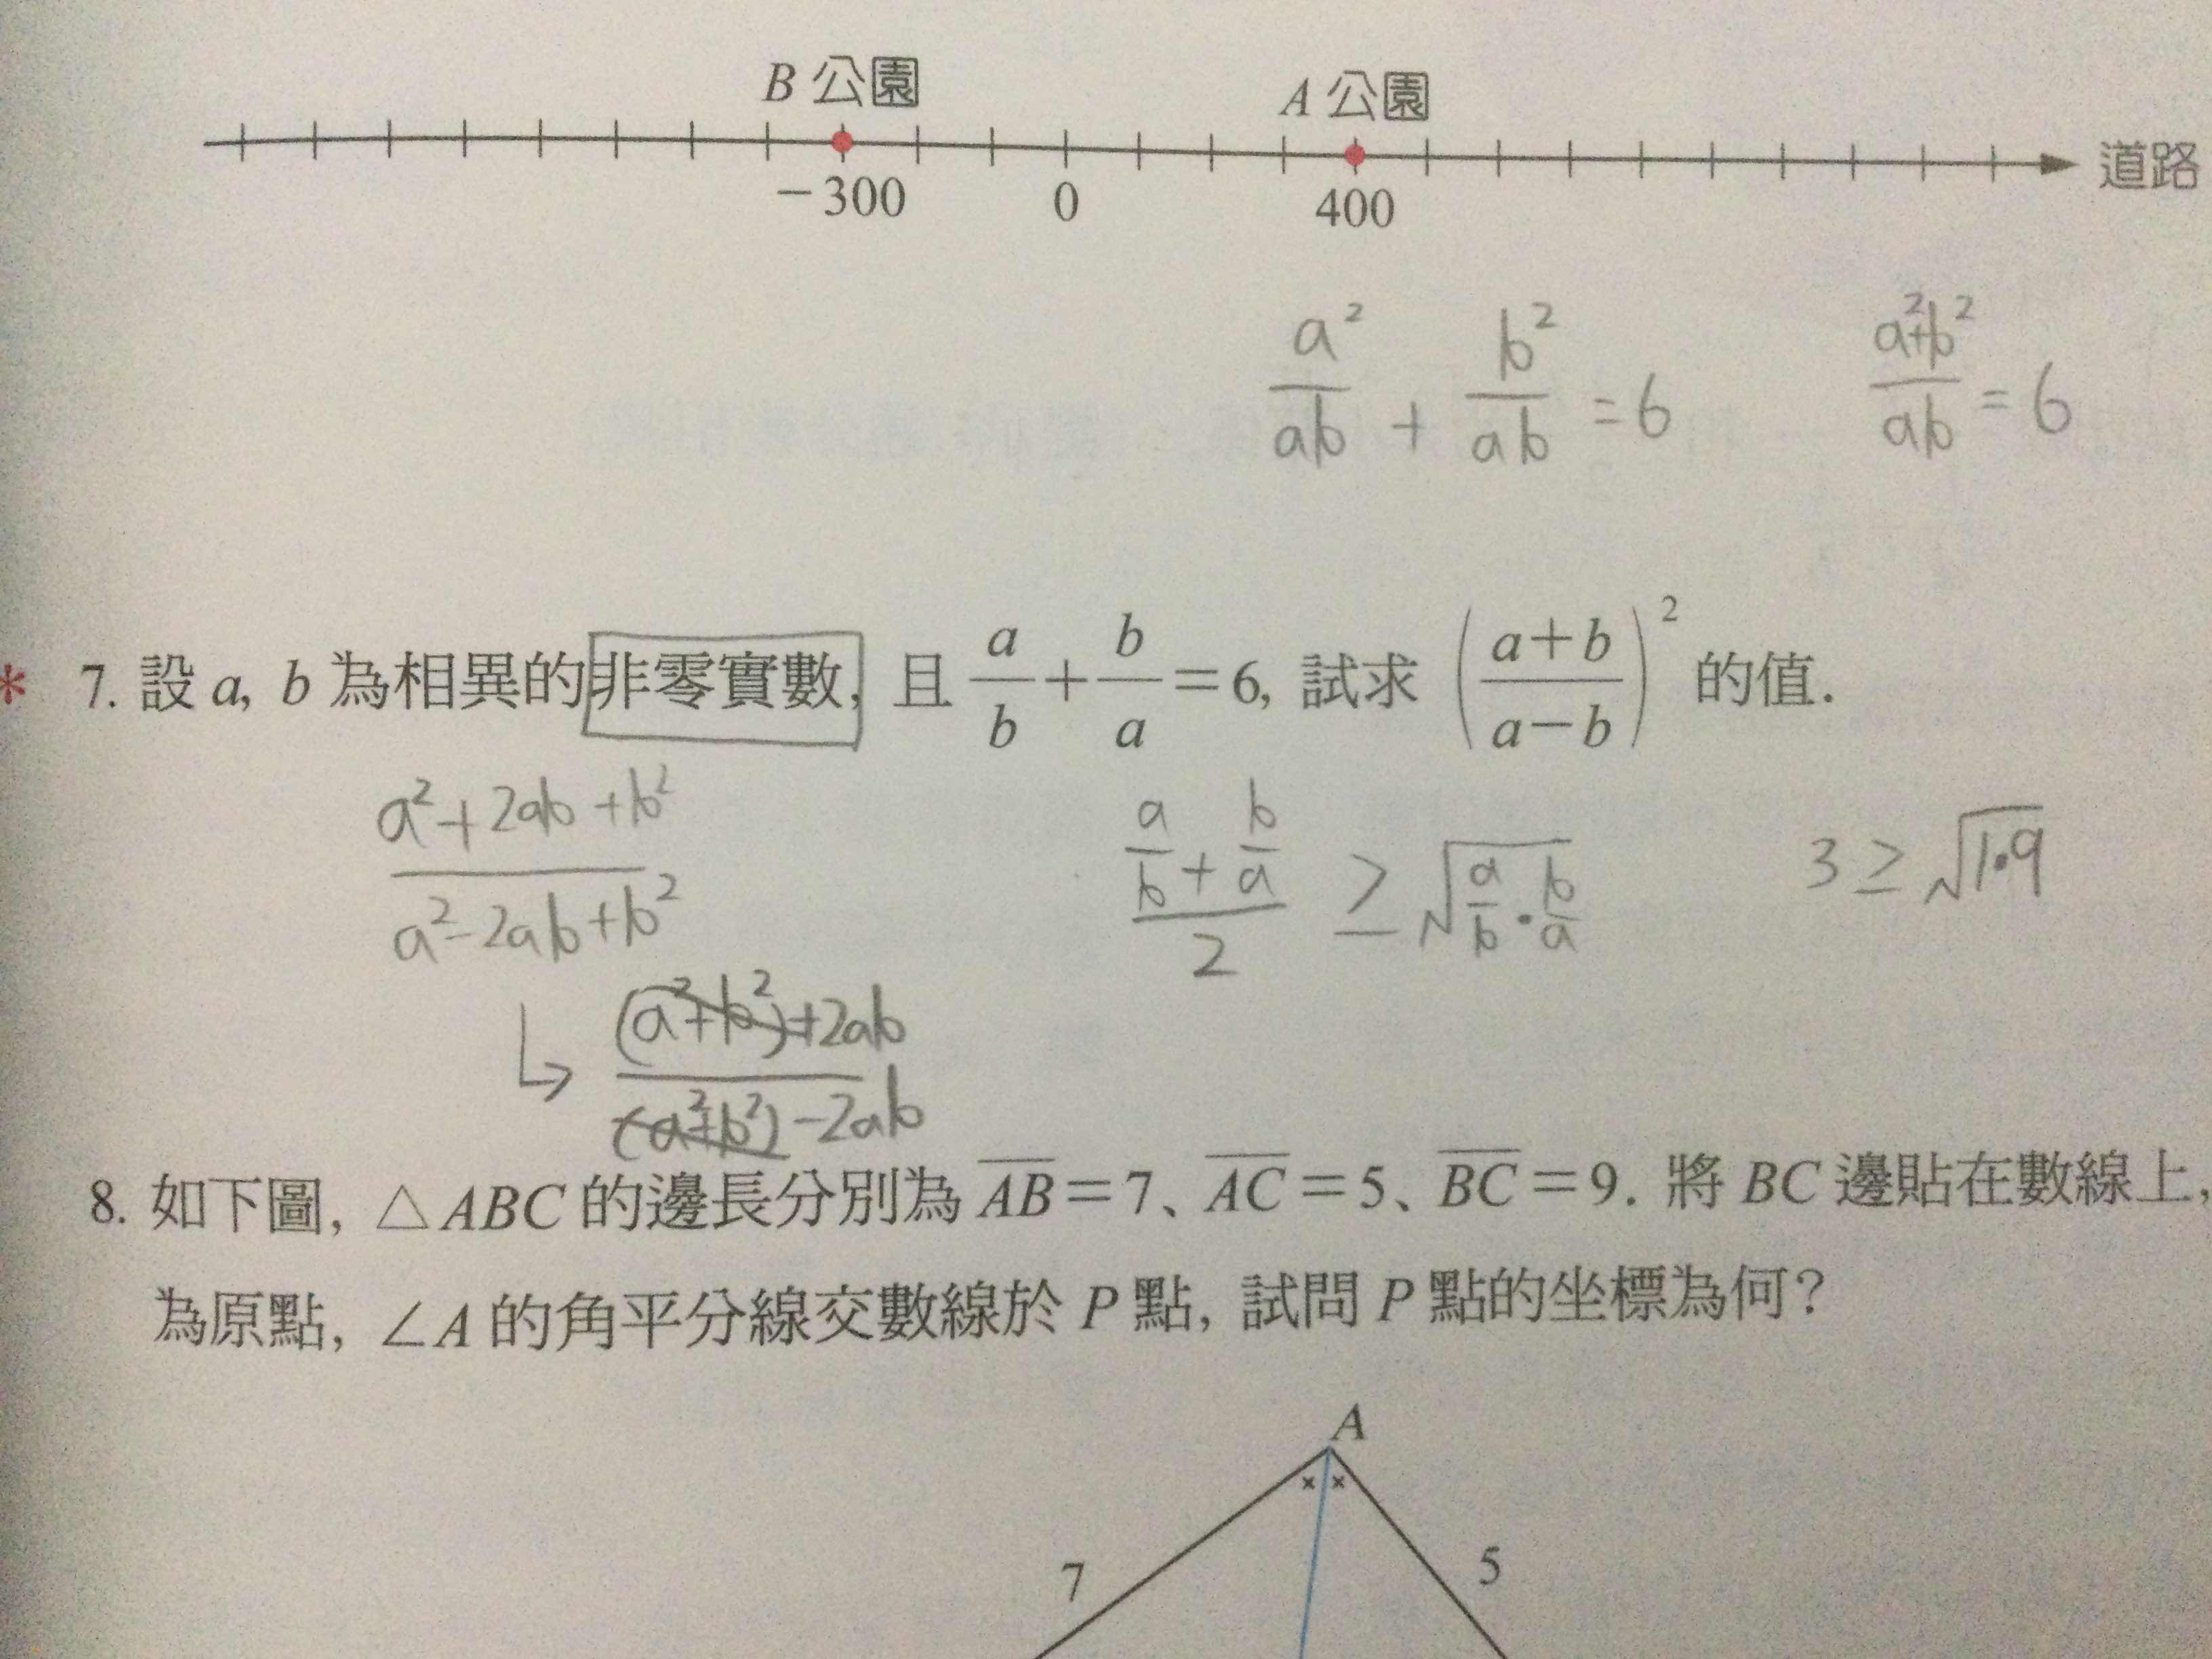 B 公園 A 公園
−300 0 400 道路
a²/ab + b²/ab = 6 (a²+b²)/ab = 6
* 7. 設 a, b 為相異的非零實數, 且 a/b + b/a = 6, 試求 ((a+b)/(a−b))² 的值.
(a²+2ab+b²)/(a²−2ab+b²) (a/b + b/a)/2 ≥ √(a/b · b/a) 3 ≥ √(1·9)
↳ ((a²+b²)+2ab)/((a²+b²)−2ab)
8. 如下圖, △ABC 的邊長分別為 AB̅=7、AC̅=5、BC̅=9. 將 BC 邊貼在數線上,
為原點, ∠A 的角平分線交數線於 P 點, 試問 P 點的坐標為何?
A
× ×
7 5